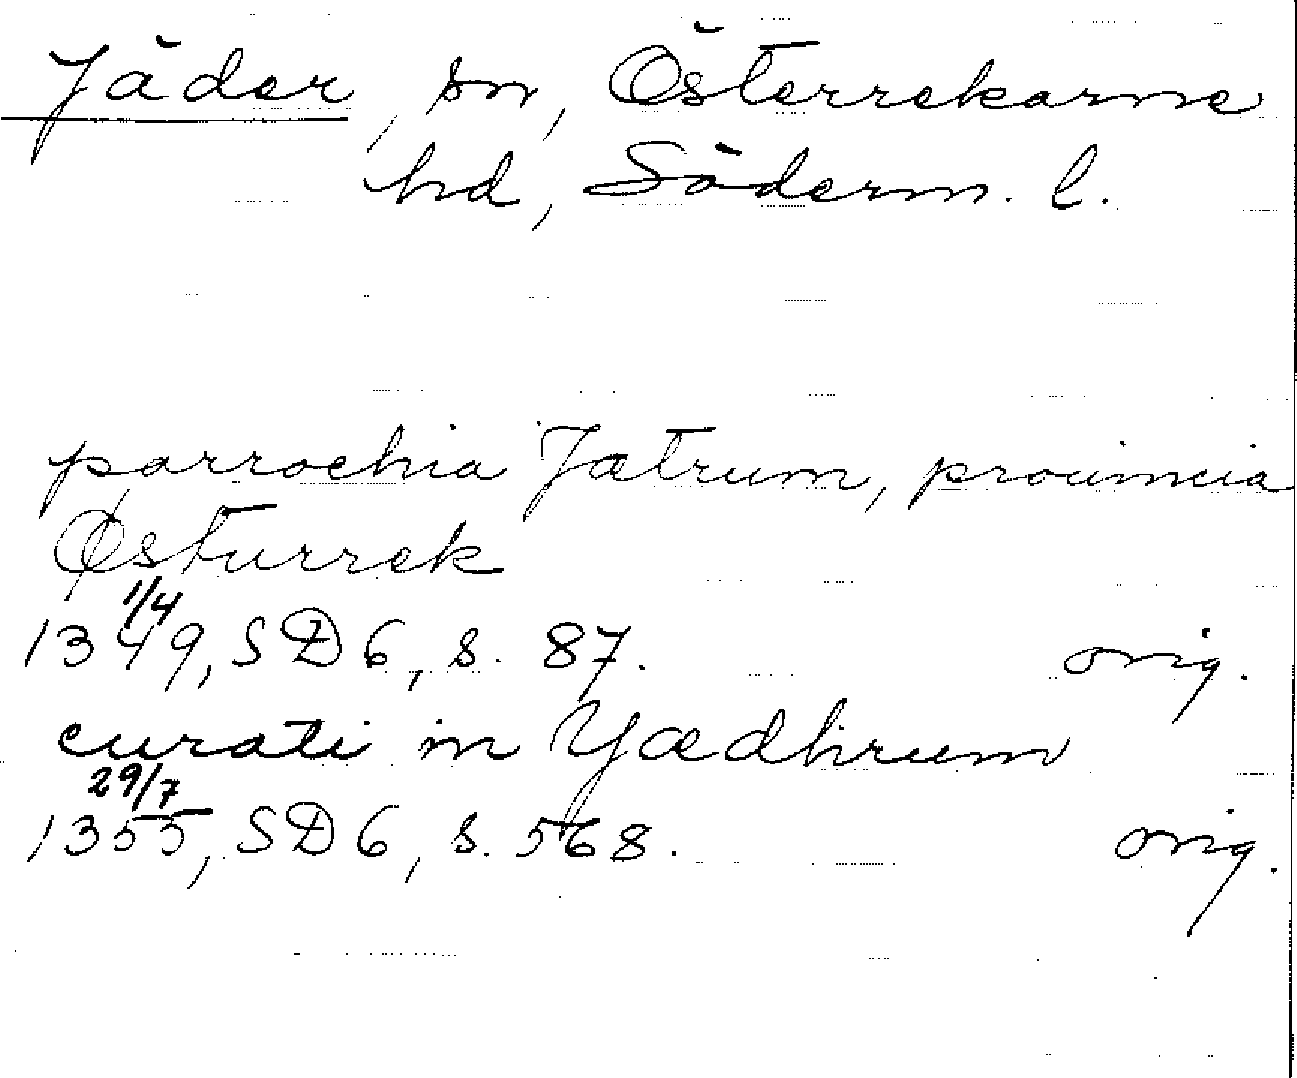 Jäder, sn, Österrekarne
hd, Söderm. l.
parrochia Jatrum, prouincia
Østurrek
1/4
1349, SD 6, s. 87. orig.
curati in Yædhrum
29/7
1355, SD 6, s. 568. orig.